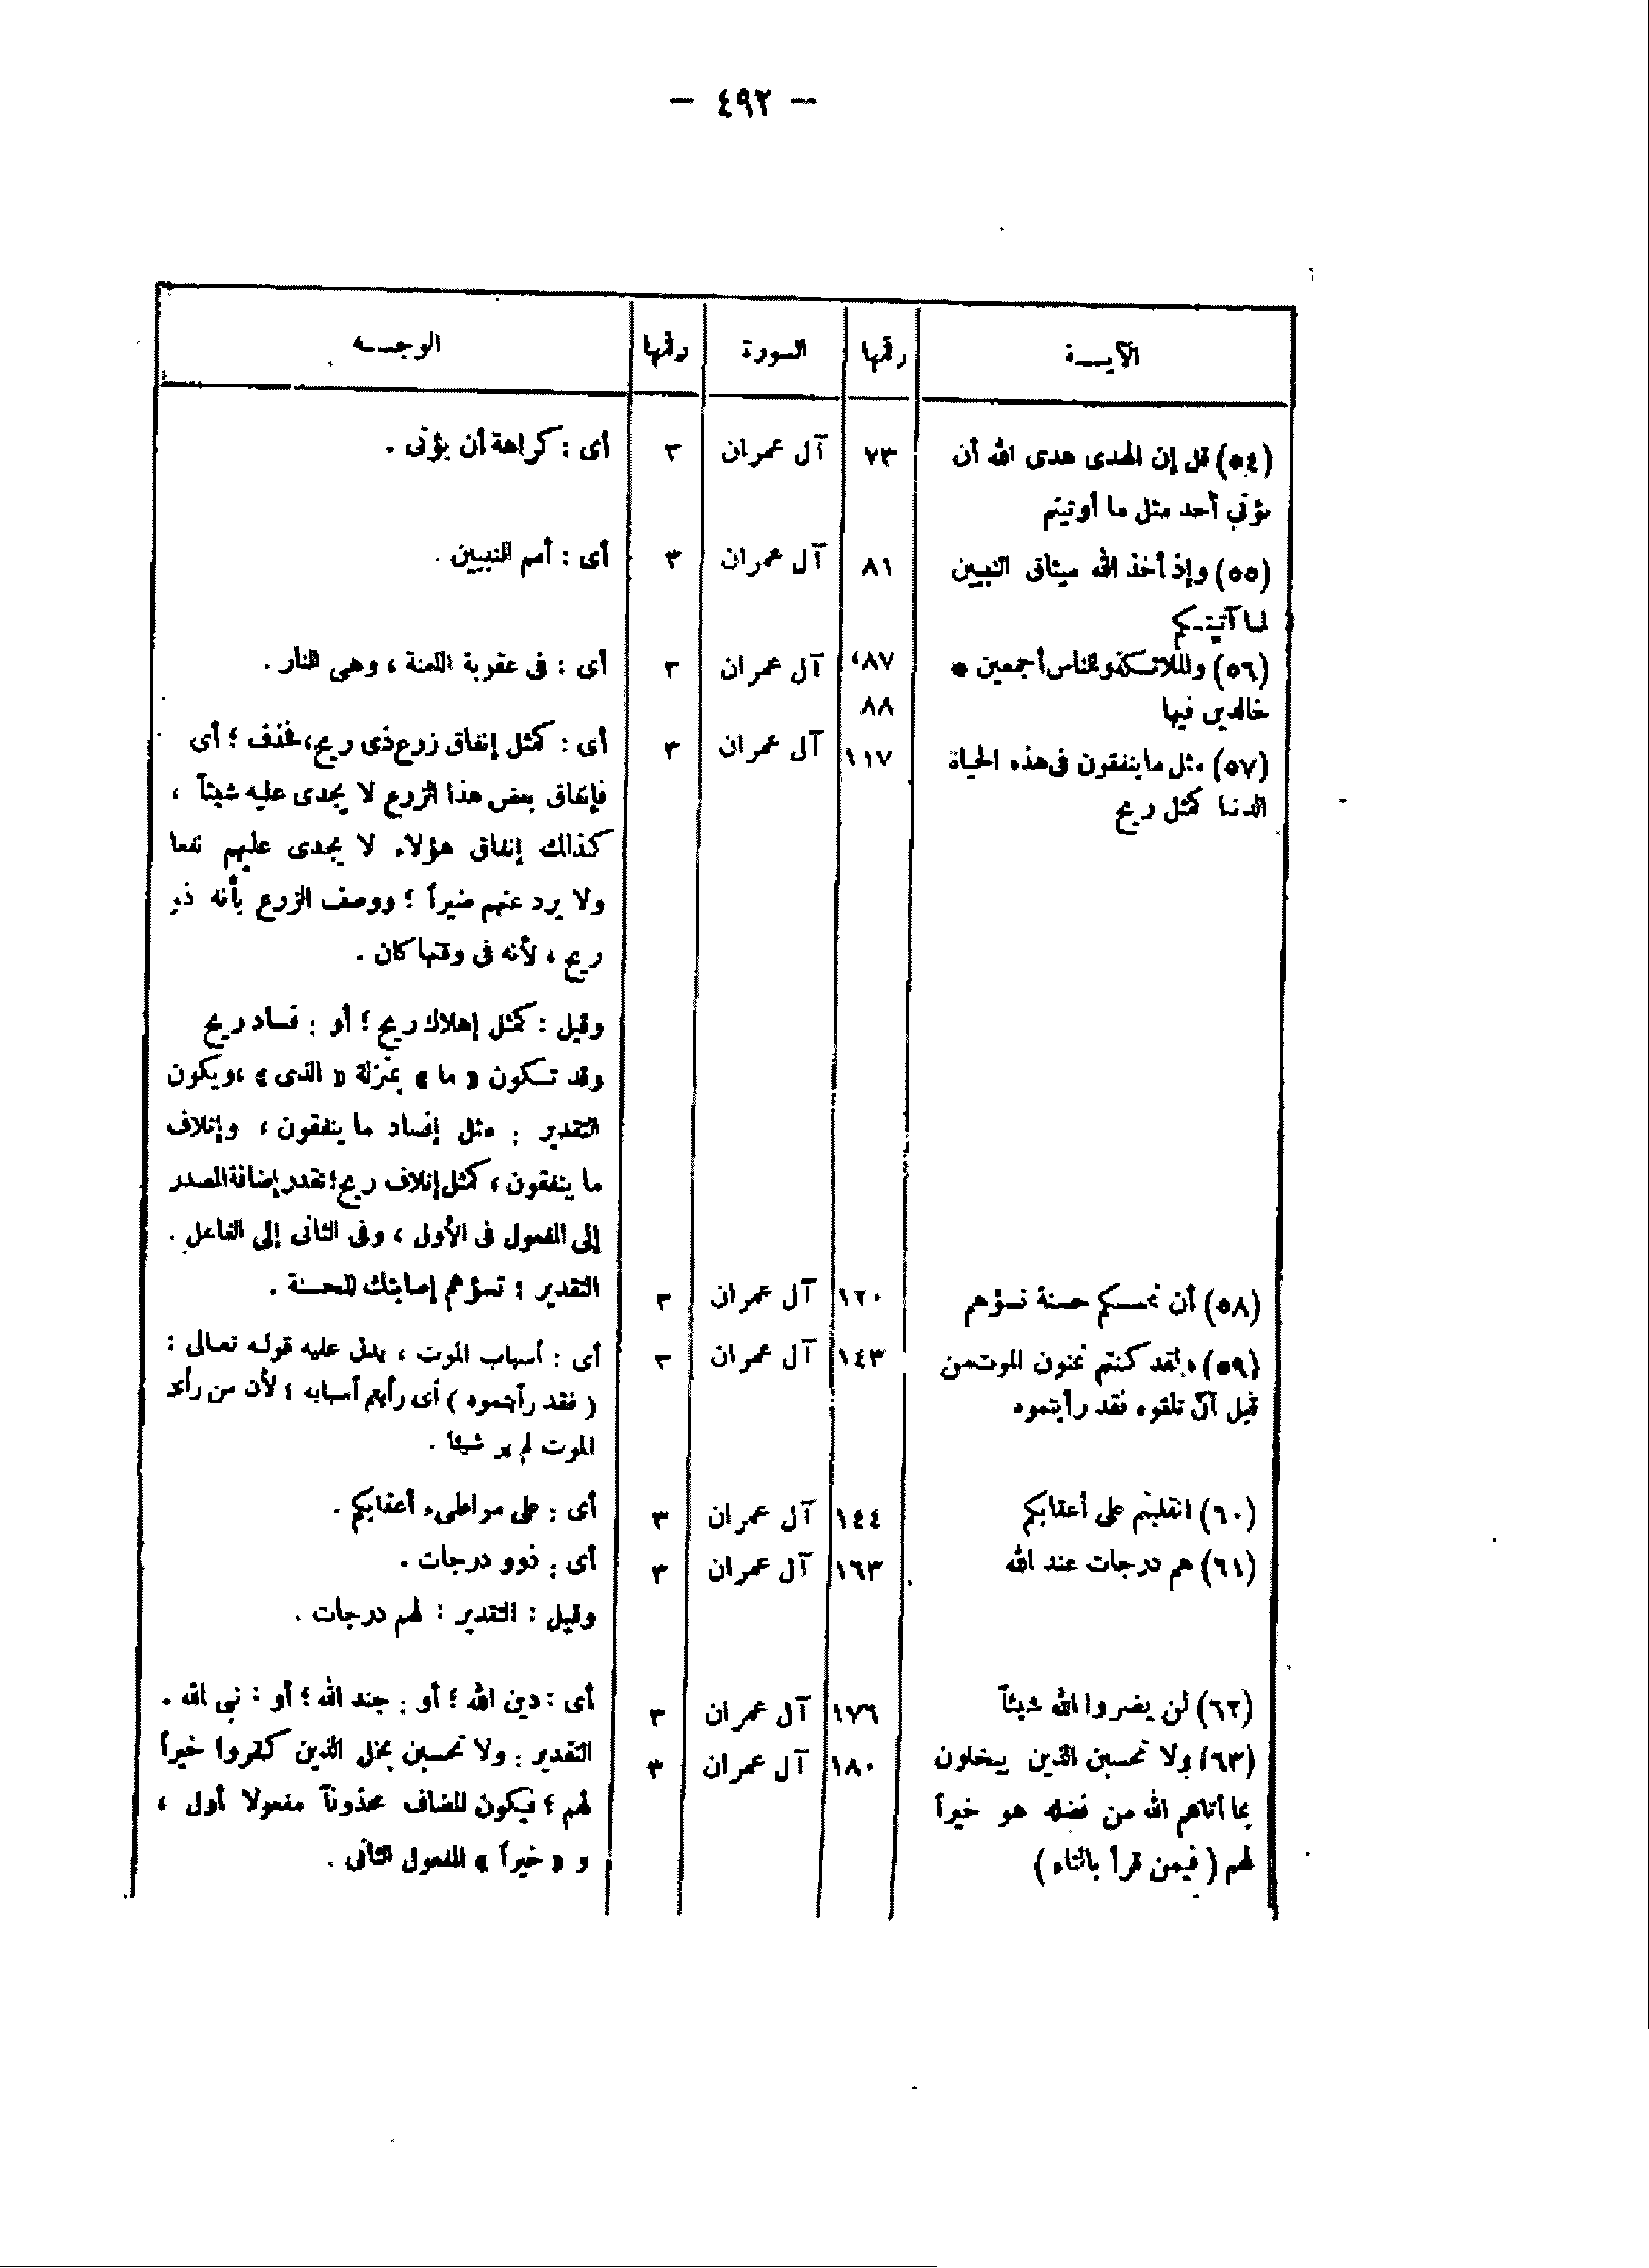 — ٤٩٢ —
الآيـــة رقمها السورة رقمها الوجــه
(٥٤) قل إن الهدى هدى الله أن ٧٣ آل عمران ٣ أى : كراهة أن يؤتى .
يؤتي أحد مثل ما أوتيتم
(٥٥) وإذ أخذ الله ميثاق النبيين ٨١ آل عمران ٣ أى : أمم النبيين .
لمـا آتيتـكم
(٥٦) والملائـكة والناس أجمعين * ٨٧، آل عمران ٣ أى : فى عقوبة اللعنة ، وهى النار .
خالدين فيها ٨٨
(٥٧) مثل ما ينفقون فى هذه الحياة ١١٧ آل عمران ٣ أى : كمثل إنفاق زرع ذى ريح، فحذف ؛ أى
الدنيا كمثل ريح فإنفاق بعض هذا الزرع لا يجدى عليه شيئاً ،
كذالك إنفاق هؤلاء لا يجدى عليهم نفعا
ولا يرد عنهم ضيراً ؛ ووصف الزرع بأنه ذو
ريح ، لأنه فى وقتها كان .
وقيل : كمثل إهلاك ريح ؛ أو : فساد ريح
وقد تـكون « ما » بمنزلة « الذى » ،ويكون
التقدير : مثل إفساد ما ينفقون ، وإتلاف
ما ينفقون ، كمثل إتلاف ريح ؛ تقدر إضافة المصدر
إلى المفعول فى الأول ، وفى الثانى إلى الفاعل .
(٥٨) أن تمسـكم حسنة تسؤهم ١٢٠ آل عمران ٣ التقدير : تسؤهم إصابتك للحسنة .
(٥٩) ولقد كنتم تمنون الموت من ١٤٣ آل عمران ٣ أى : أسباب الموت ، يدل عليه قوله تعالى :
قبل أن تلقوه فقد رأيتموه ( فقد رأيتموه ) أى رأيتم أسبابه ؛ لأن من رأى
الموت لم ير شيئا .
(٦٠) انقلبتم على أعقابكم ١٤٤ آل عمران ٣ أى : على مواطىء أعقابكم .
(٦١) هم درجات عند الله ١٦٣ آل عمران ٣ أى : ذوو درجات .
وقيل : التقدير : لهم درجات .
(٦٢) لن يضروا الله شيئاً ١٧٦ آل عمران ٣ أى : دين الله ؛ أو : جند الله ؛ أو : نبى الله .
(٦٣) ولا تحسبن الذين يبخلون ١٨٠ آل عمران ٣ التقدير : ولا تحسبن بخل الذين كفروا خيراً
بما آتاهم الله من فضله هو خيراً لهم ؛ فيكون المضاف محذوفاً مفعولا أول ،
لهم ( فيمن قرأ بالتاء ) و « خيراً » المفعول الثانى .